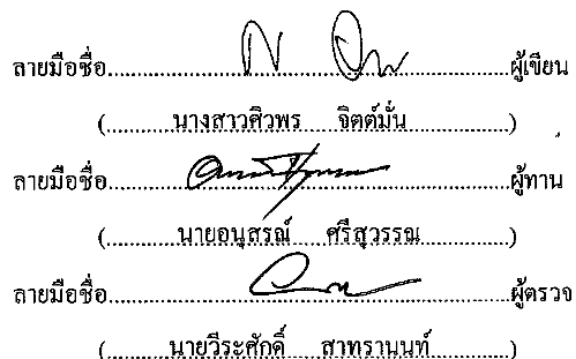 ลายมือชื่อ..................................................ผู้เขียน
(..........นางสาวศิวพร จิตต์มั่น..........)
ลายมือชื่อ..................................................ผู้ทาน
(..........นายอนุสรณ์ ศรีสุวรรณ..........)
ลายมือชื่อ..................................................ผู้ตรวจ
(..........นายวีระศักดิ์ สาทรานนท์..........)